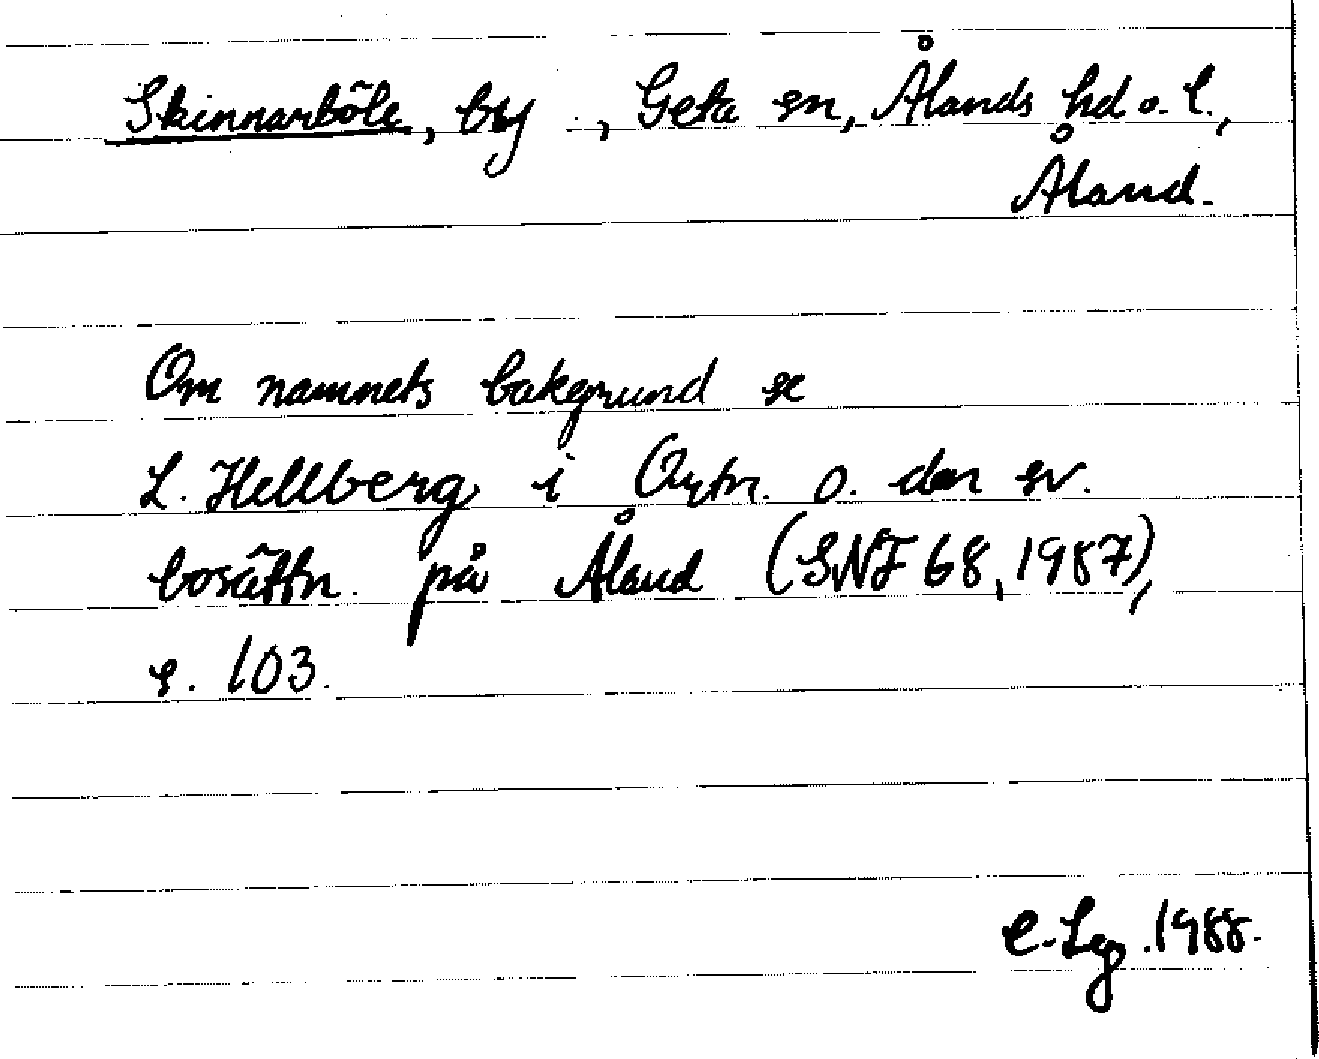 Skinnarböle, by ., Geta sn, Ålands hd o. l.,
Åland.
Om namnets bakgrund se
L. Hellberg i Ortn. o. den sv.
bosättn. på Åland (SNF 68, 1987),
s. 103.
C-Lg. 1988.